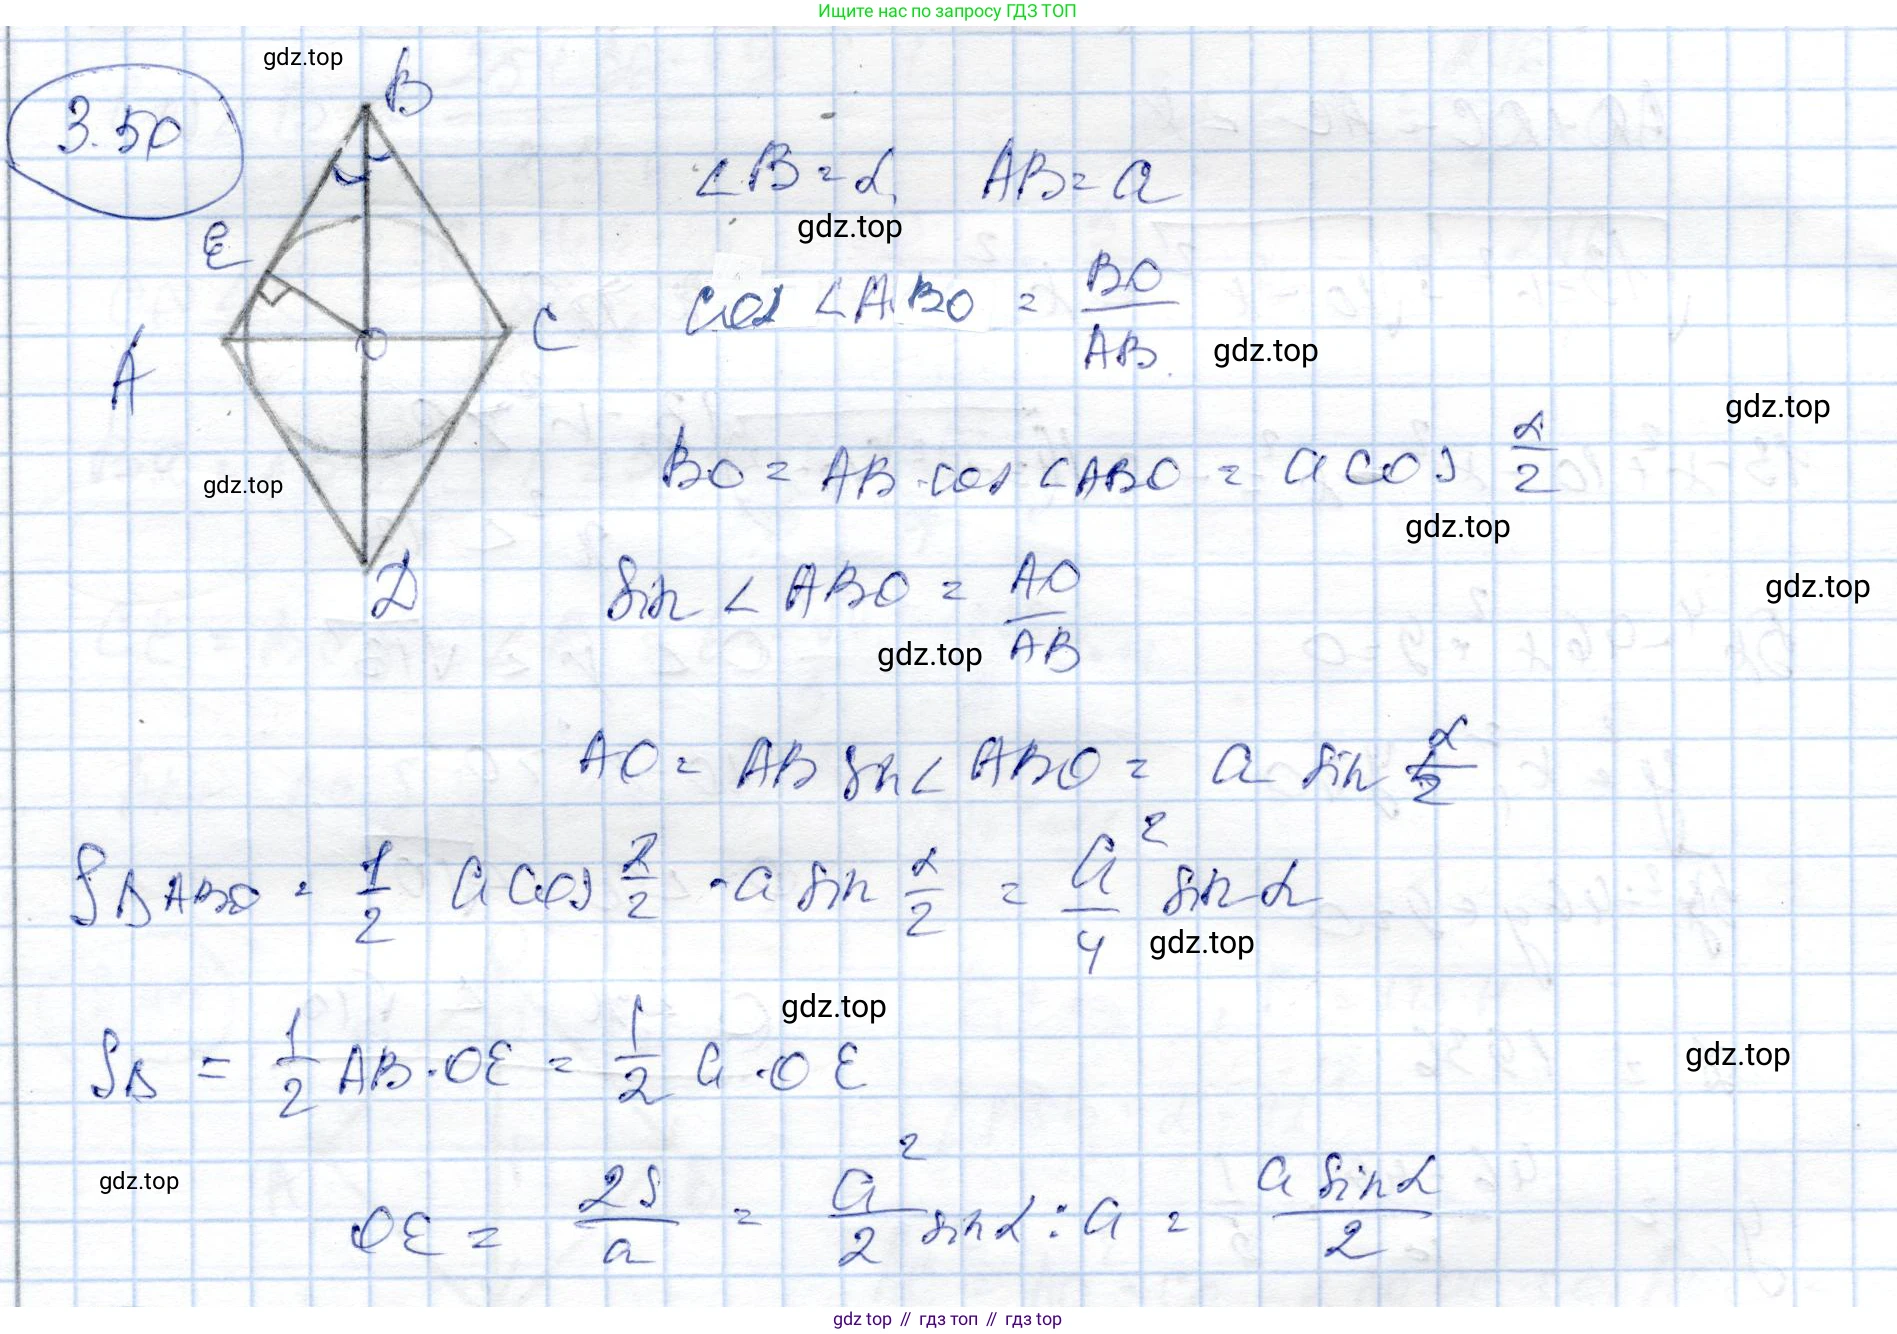 Ищите нас по запросу ГДЗ ТОП
gdz.top
3.50
B
E
A
O
C
D
∠B = α, AB = a
gdz.top
cos ∠ABO = BO/AB
gdz.top
gdz.top
BO = AB · cos ∠ABO = a cos α/2
gdz.top
gdz.top
sin ∠ABO = AO/AB
gdz.top
gdz.top
AO = AB sin ∠ABO = a sin α/2
S△ABO = 1/2 a cos α/2 · a sin α/2 = a²/4 sin α
gdz.top
gdz.top
S△ = 1/2 AB · OE = 1/2 a · OE
gdz.top
gdz.top
OE = 2S/a = a²/2 sin α : a = a sin α/2
gdz.top // гдз топ // гдз top